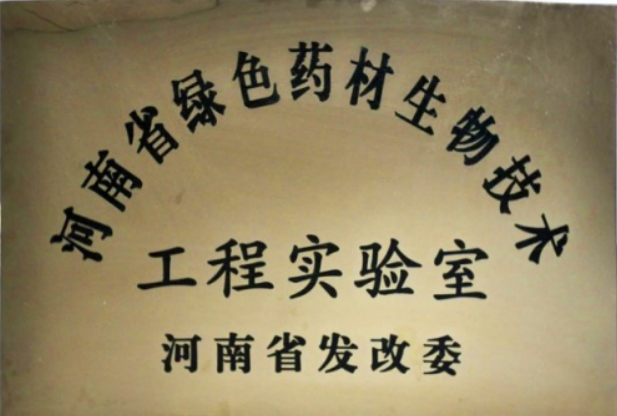 河南省绿色药材生物技术
工程实验室
河南省发改委